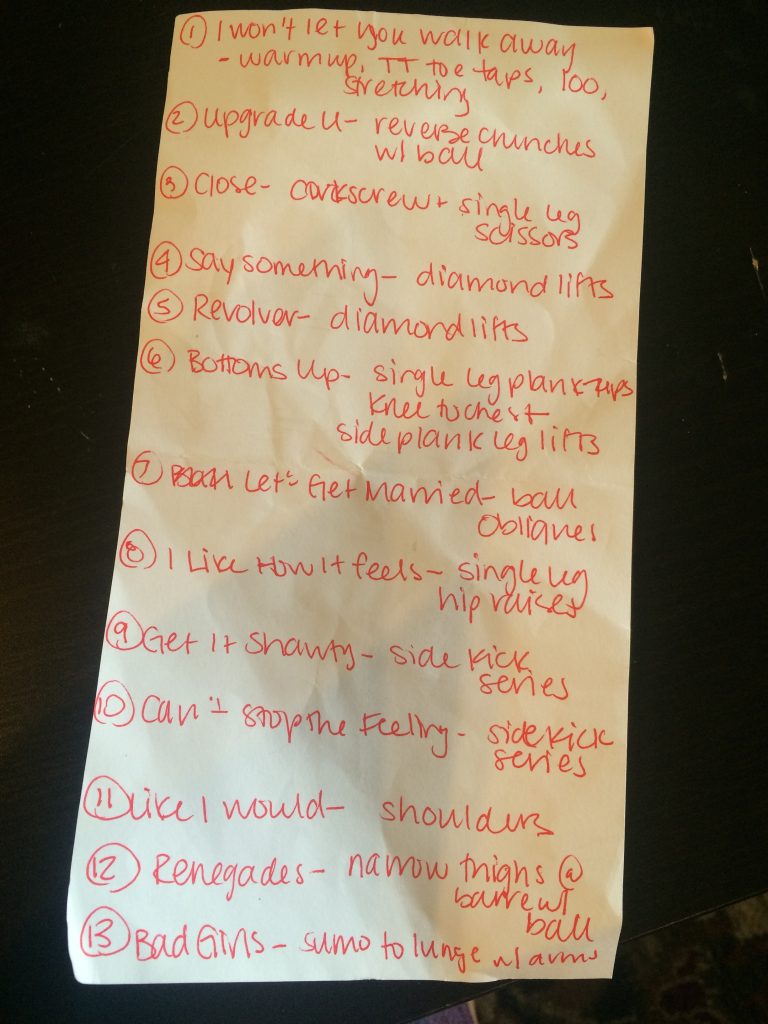 ① I won't let you walk away
- warmup, TT toe taps, 100,
stretching
② Upgrade U- reverse crunches
w/ ball
③ Close- corkscrew + single leg
scissors
④ Say something- diamond lifts
⑤ Revolver- diamond lifts
⑥ Bottoms Up- single leg plank
knee to chest
side plank leg lifts
⑦ Let's Get Married- ball
Obliques
⑧ I Like How It feels- single leg
hip raises
⑨ Get It Shawty- side kick
series
⑩ Can't stop the Feeling- side kick
series
⑪ Like I would- shoulders
⑫ Renegades- narrow thighs @
barre w/
ball
⑬ Bad Girls- sumo to lunge w/ arms